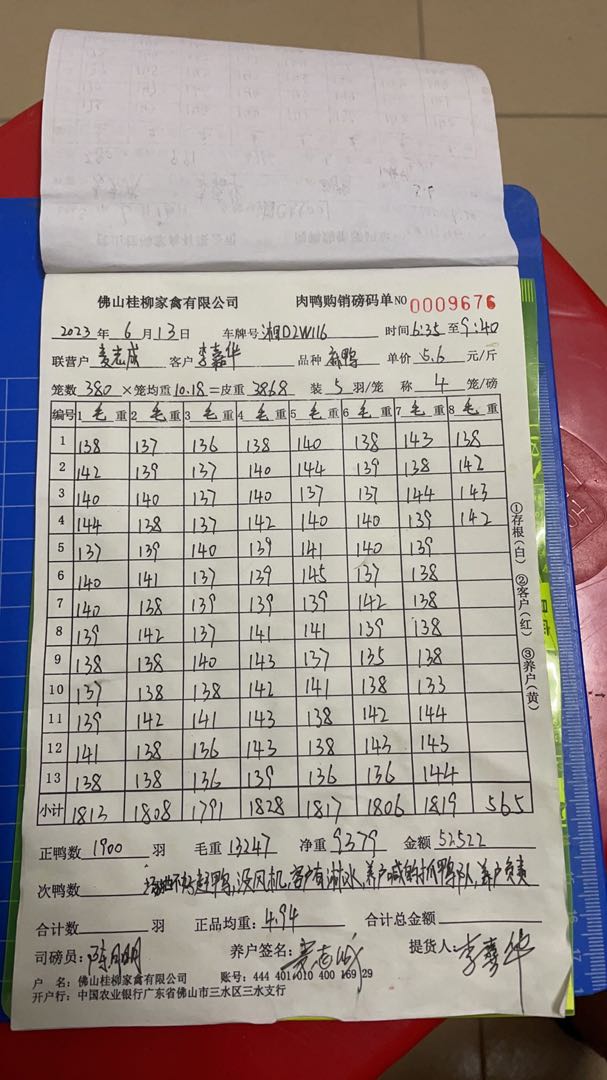 佛山桂柳家禽有限公司 肉鸭购销磅码单 NO 0009676
2023 年 6 月 13 日 车牌号 湘D2W116 时间 6:35 至 9:40
联营户 麦志成 客户 李嘉华 品种 单价 5.6 元/斤
笼数 380 ×笼均重 10.18 =皮重 3868 装 5 羽/笼 称 4 笼/磅
编号 1 毛 重 2 毛 重 3 毛 重 4 毛 重 5 毛 重 6 毛 重 7 毛 重 8 毛 重
1 138 137 136 138 140 138 143 138
2 142 139 137 140 144 139 138 142
3 140 140 137 140 137 137 144 143
4 144 138 137 142 140 140 139 142
5 137 139 140 139 141 140 139
6 140 141 137 139 145 137 138
7 140 138 139 139 139 142 138
8 139 142 137 141 141 139 138
9 138 138 140 143 137 135 138
10 137 138 138 142 141 138 133
11 139 142 141 143 138 142 144
12 141 138 136 143 138 143 143
13 138 138 136 139 136 136 144
小计 1813 1808 1791 1828 1817 1806 1819 565
正鸭数 1900 羽 毛重 13247 净重 9379 金额 52522
次鸭数 赶鸭,没风机,客户有淋水,养户喊的抓鸭队,养户负责
合计数 羽 正品均重: 4.94 合计总金额
司磅员: 养户签名: 麦志成 提货人: 李嘉华
户 名: 佛山桂柳家禽有限公司 账号: 444 401 010 400 169 29
开户行: 中国农业银行广东省佛山市三水区三水支行
①存根(白) ②客户(红) ③养户(黄)